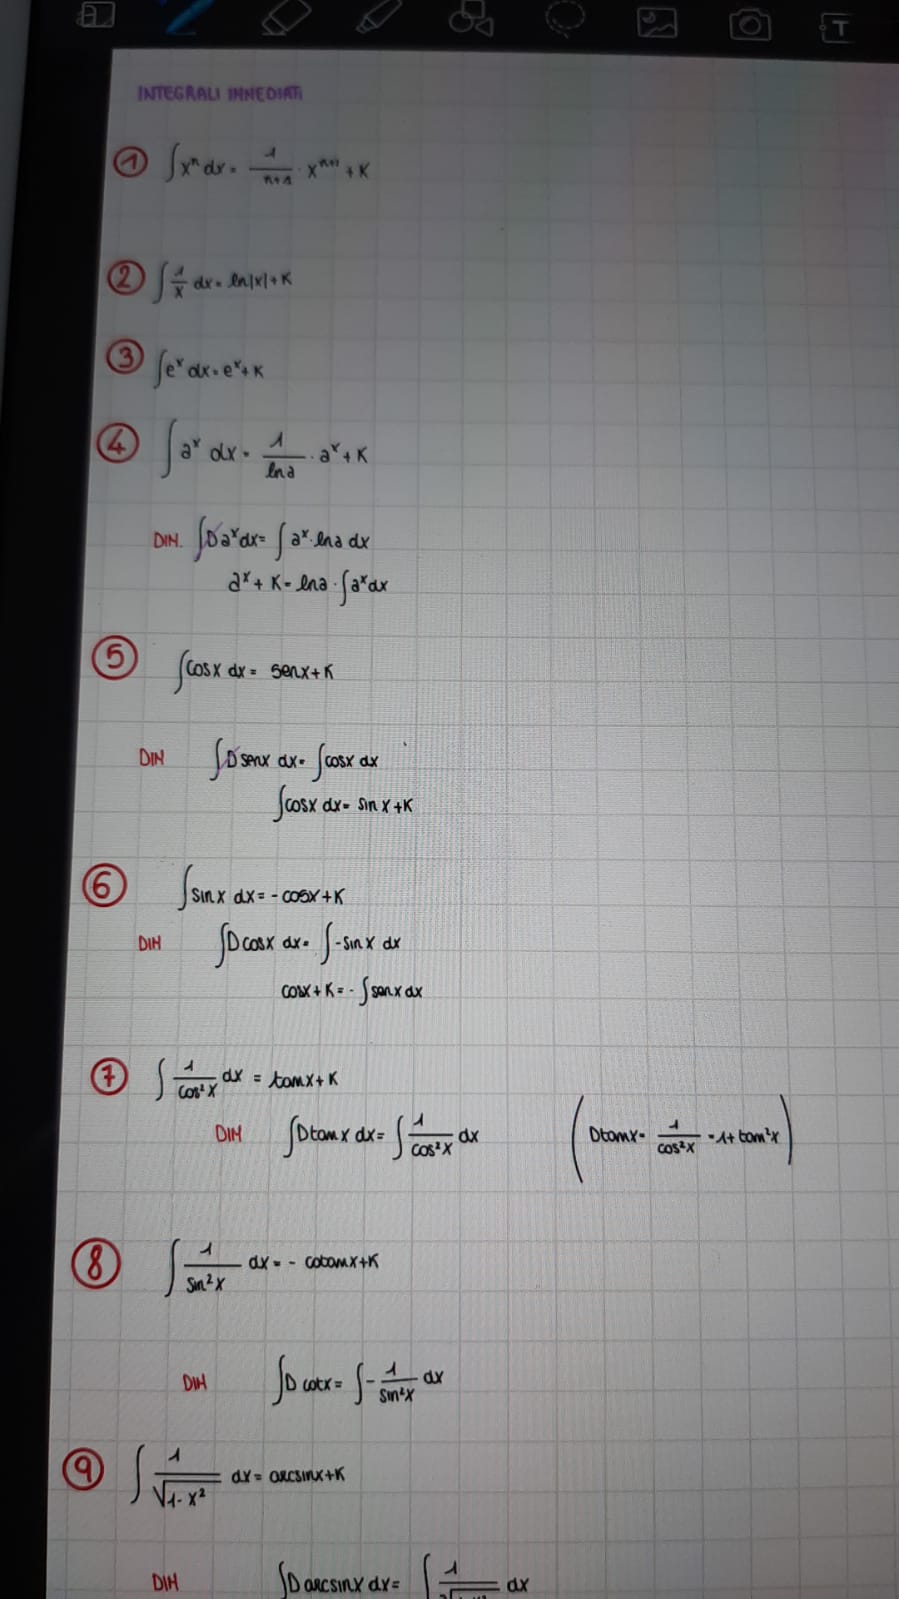 INTEGRALI IMMEDIATI
① ∫xⁿ dx = 1/(n+1) · xⁿ⁺¹ + K
② ∫ 1/x dx = ln|x| + K
③ ∫eˣ dx = eˣ + K
④ ∫aˣ dx = 1/ln a · aˣ + K
DIM. ∫D aˣ dx = ∫aˣ · ln a dx
aˣ + K = ln a · ∫aˣ dx
⑤ ∫cos x dx = sen x + K
DIM ∫D sen x dx = ∫cos x dx
∫cos x dx = sin x + K
⑥ ∫sin x dx = - cos x + K
DIM ∫D cos x dx = ∫-sin x dx
cos x + K = - ∫sen x dx
⑦ ∫ 1/cos²x dx = tan x + K
DIM ∫D tan x dx = ∫ 1/cos²x dx (D tan x = 1/cos²x = 1 + tan²x)
⑧ ∫ 1/sin²x dx = - cotan x + K
DIM ∫D cot x = ∫ - 1/sin²x dx
⑨ ∫ 1/√(1-x²) dx = arcsin x + K
DIM ∫D arcsin x dx = ∫ 1/ dx